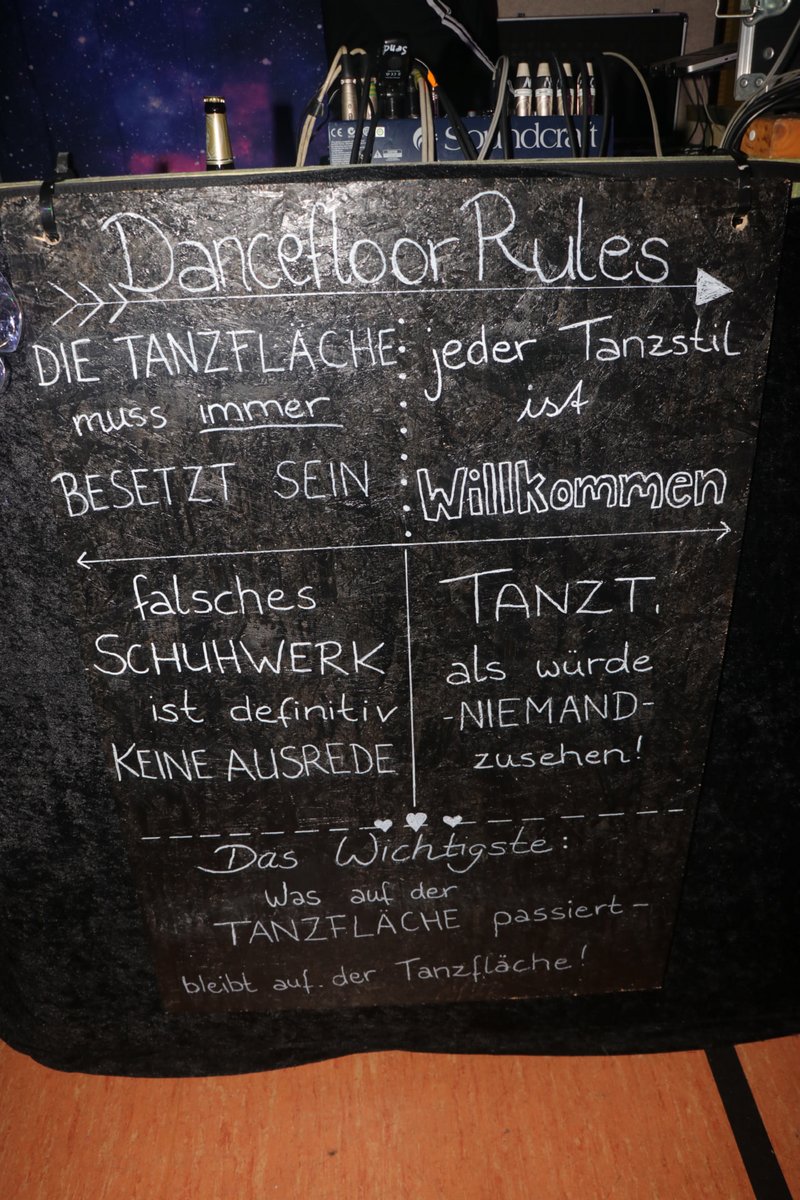 Send
CE
Soundcraft
Dancefloor Rules
DIE TANZFLÄCHE
muss immer
BESETZT SEIN
jeder Tanzstil
ist
Willkommen
falsches
SCHUHWERK
ist definitiv
KEINE AUSREDE
TANZT.
als würde
-NIEMAND-
zusehen!
Das Wichtigste:
Was auf der
TANZFLÄCHE passiert-
bleibt auf der Tanzfläche!